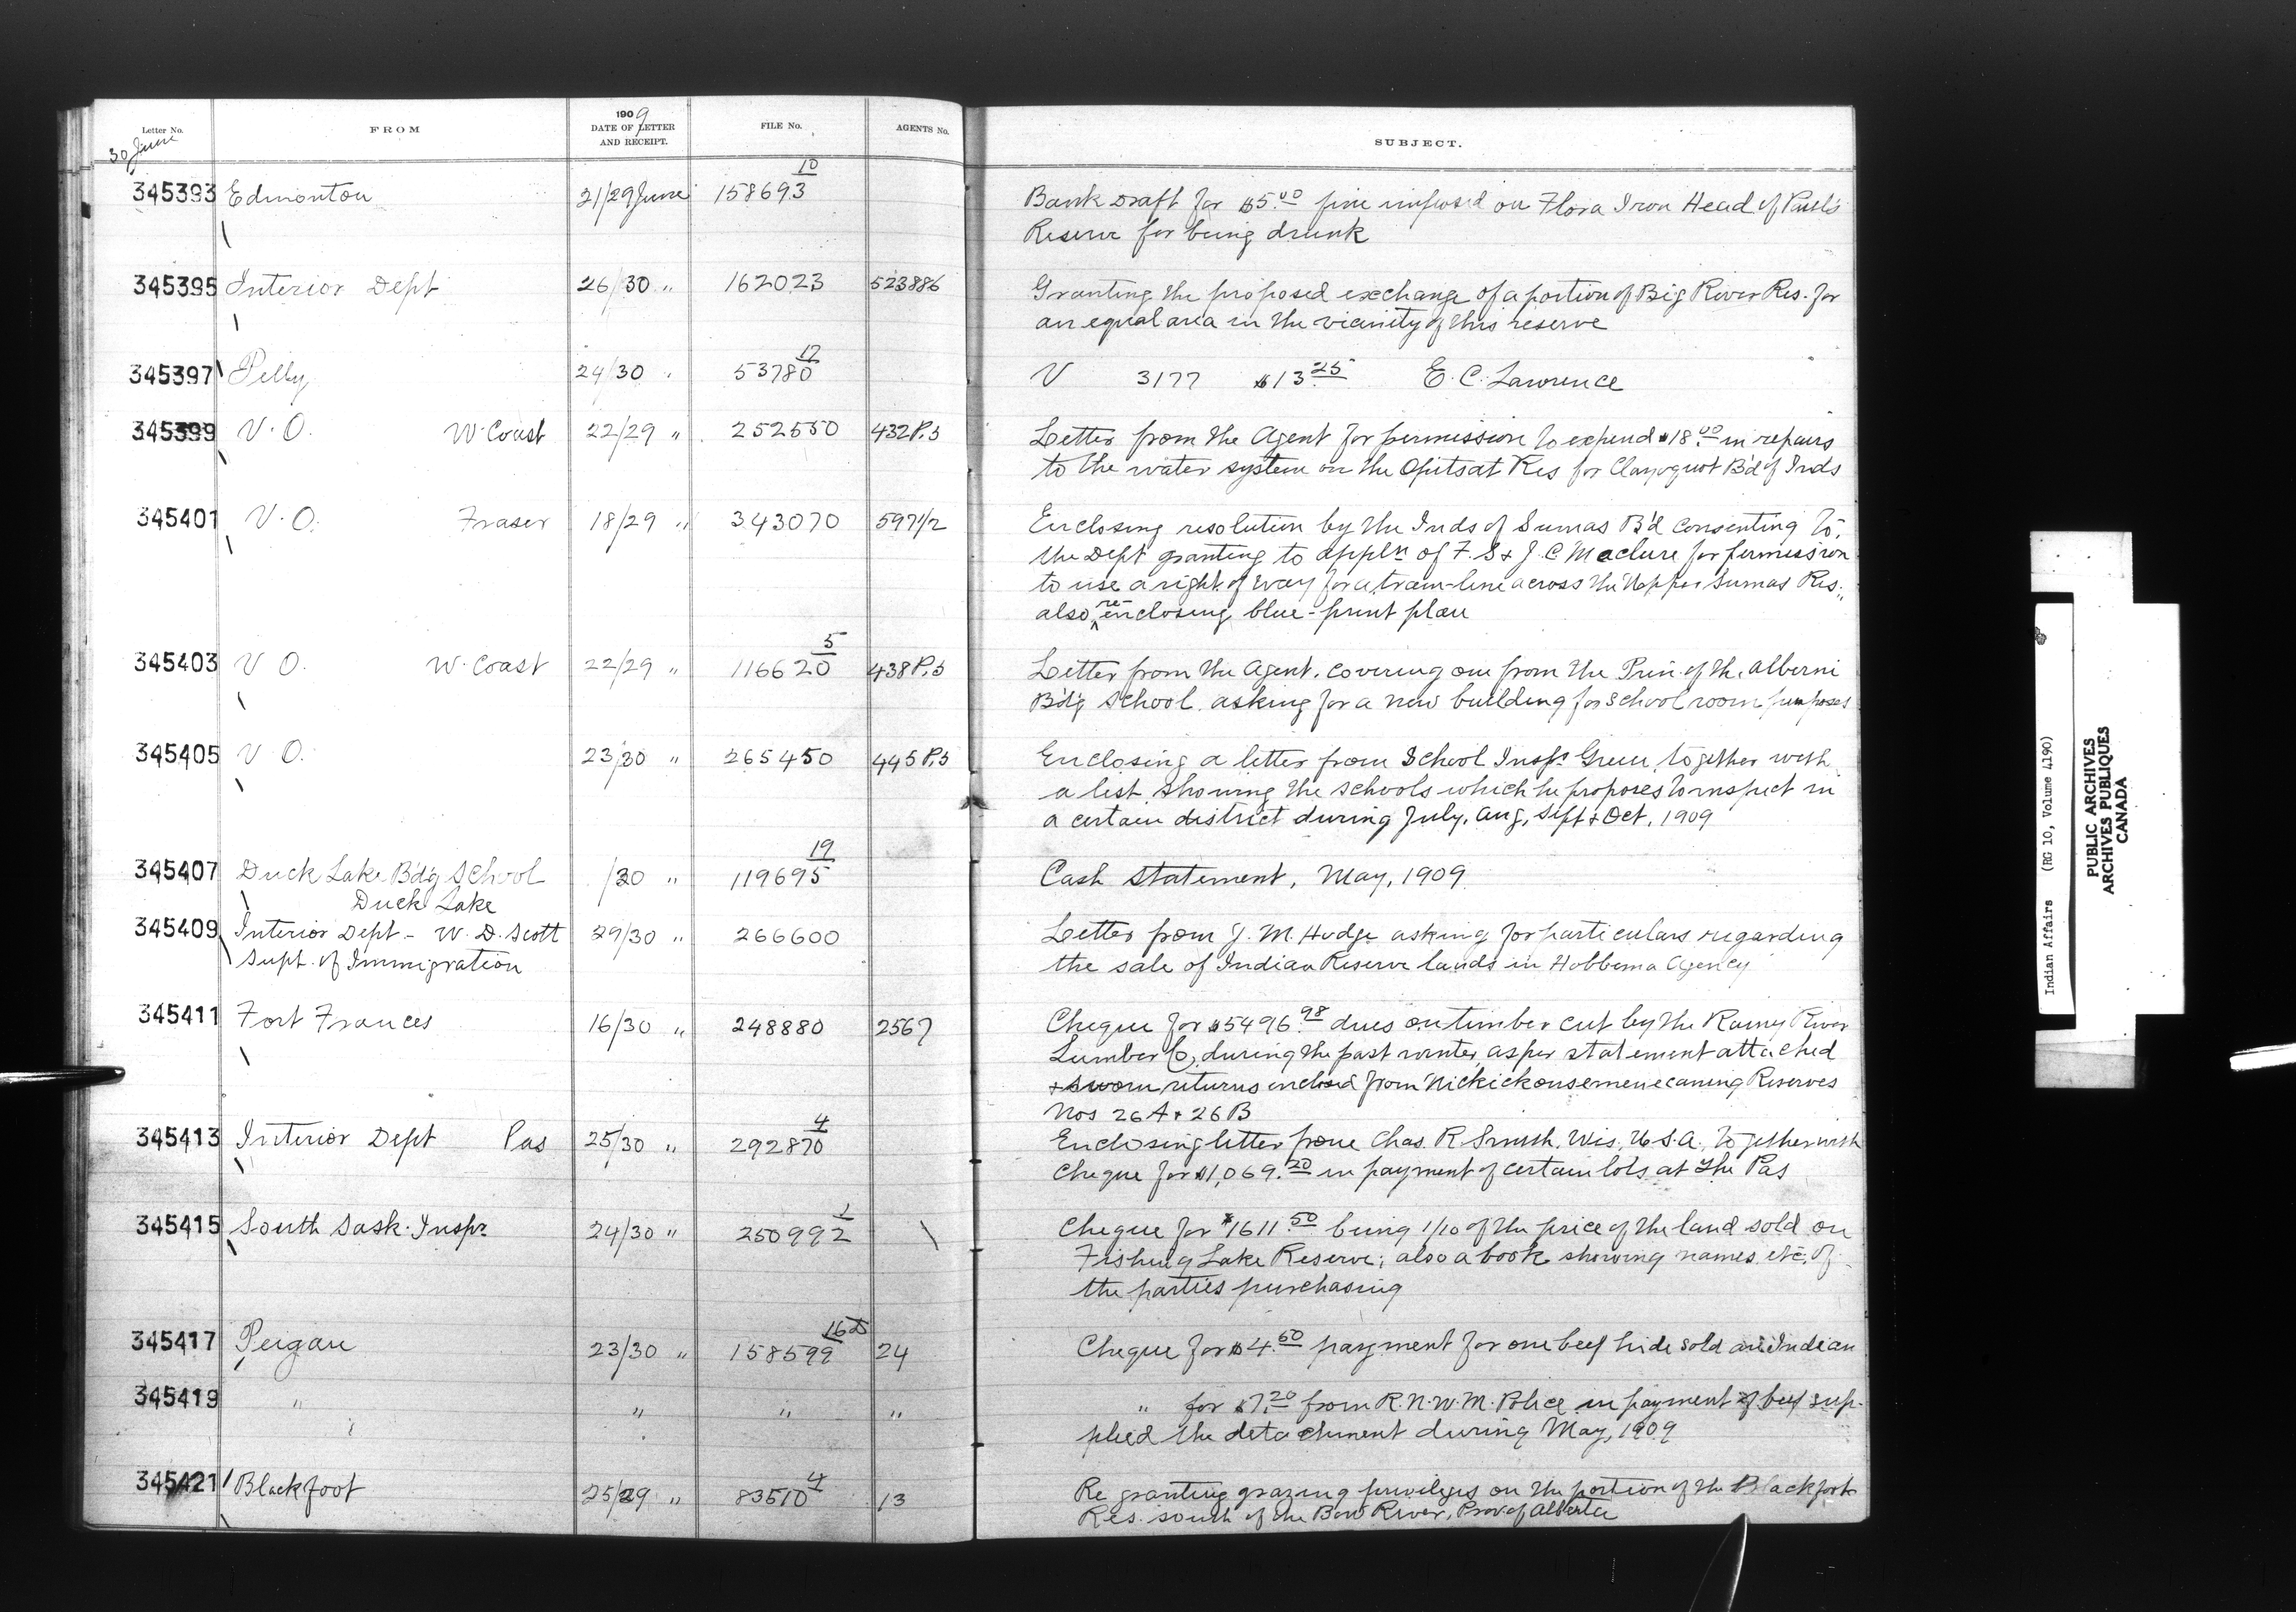 Letter No. FROM 1909 DATE OF LETTER AND RECEIPT. FILE No. AGENTS No. SUBJECT.
30 June
345393 Edmonton 21/29 June 158693 10 Bank Draft for $5.00 fine imposed on Flora Iron Head of Paul's
Reserve for being drunk
345395 Interior Dept 26/30 " 162023 523886 Granting the proposed exchange of a portion of Big River Res. for
an equal area in the vicinity of this reserve
345397 Pelly 24/30 " 53780 12 V 3177 $13.25 E. C. Lawrence
345399 V. O. W. Coast 22/29 " 252550 432 P.5 Letter from the Agent for permission to expend $18.00 in repairs
to the water system on the Opitsat Res for Clayoquot B'd of Inds
345401 V. O. Fraser 18/29 " 343070 597 1/2 Enclosing resolution by the Inds of Sumas B'd consenting to
the Dept granting to appln of F. S & J. C Maclure for permission
to use a right of way for a tram-line across the Upper Sumas Res.;
also re-enclosing blue-print plan
345403 V O. W. Coast 22/29 " 116620 5 438 P.5 Letter from the Agent, covering one from the Prin. of the Alberni
B'd'g School asking for a new building for school room purposes
345405 V O. 23/30 " 265450 445 P.5 Enclosing a letter from School Inspr Green, together with
a list showing the schools which he proposes to inspect in
a certain district during July, Aug, Sept & Oct, 1909
345407 Duck Lake Bd'g School /30 " 119695 19 Cash Statement, May, 1909
Duck Lake
345409 Interior Dept - W. D. Scott 29/30 " 266600 Letter from J. M. Hodge asking for particulars regarding
Supt. of Immigration the sale of Indian Reserve lands in Hobbema Agency
345411 Fort Frances 16/30 " 248880 2567 Cheque for $5496.98 dues on timber cut by the Rainy River
Lumber Co, during the past winter as per statement attached
& sworn returns inclosed from Nickickonsemenecaning Reserves
Nos 26A & 26B
345413 Interior Dept Pas 25/30 " 292870 4 Enclosing letter from Chas. R. Smith, Wis, U.S.A., together with
Cheque for $1,069.20 in payment of certain lots at The Pas
345415 South Sask. Inspr 24/30 " 250992 1 Cheque for $1611.50 being 1/10 of the price of the land sold on
Fishing Lake Reserve; also a book showing names etc. of
the parties purchasing
345417 Peigan 23/30 " 158599 16D 24 Cheque for $4.50 payment for one beef hide sold an Indian
345419 " " " " " for $7.20 from R.N.W.M. Police in payment of beef sup-
plied the detachment during May, 1909
345421 Blackfoot 25/29 " 83510 4 13 Re granting grazing privileges on the portion of the Blackfoot
Res. south of the Bow River, Prov of Alberta
Indian Affairs (RG 10, Volume 4190)
PUBLIC ARCHIVES
ARCHIVES PUBLIQUES
CANADA